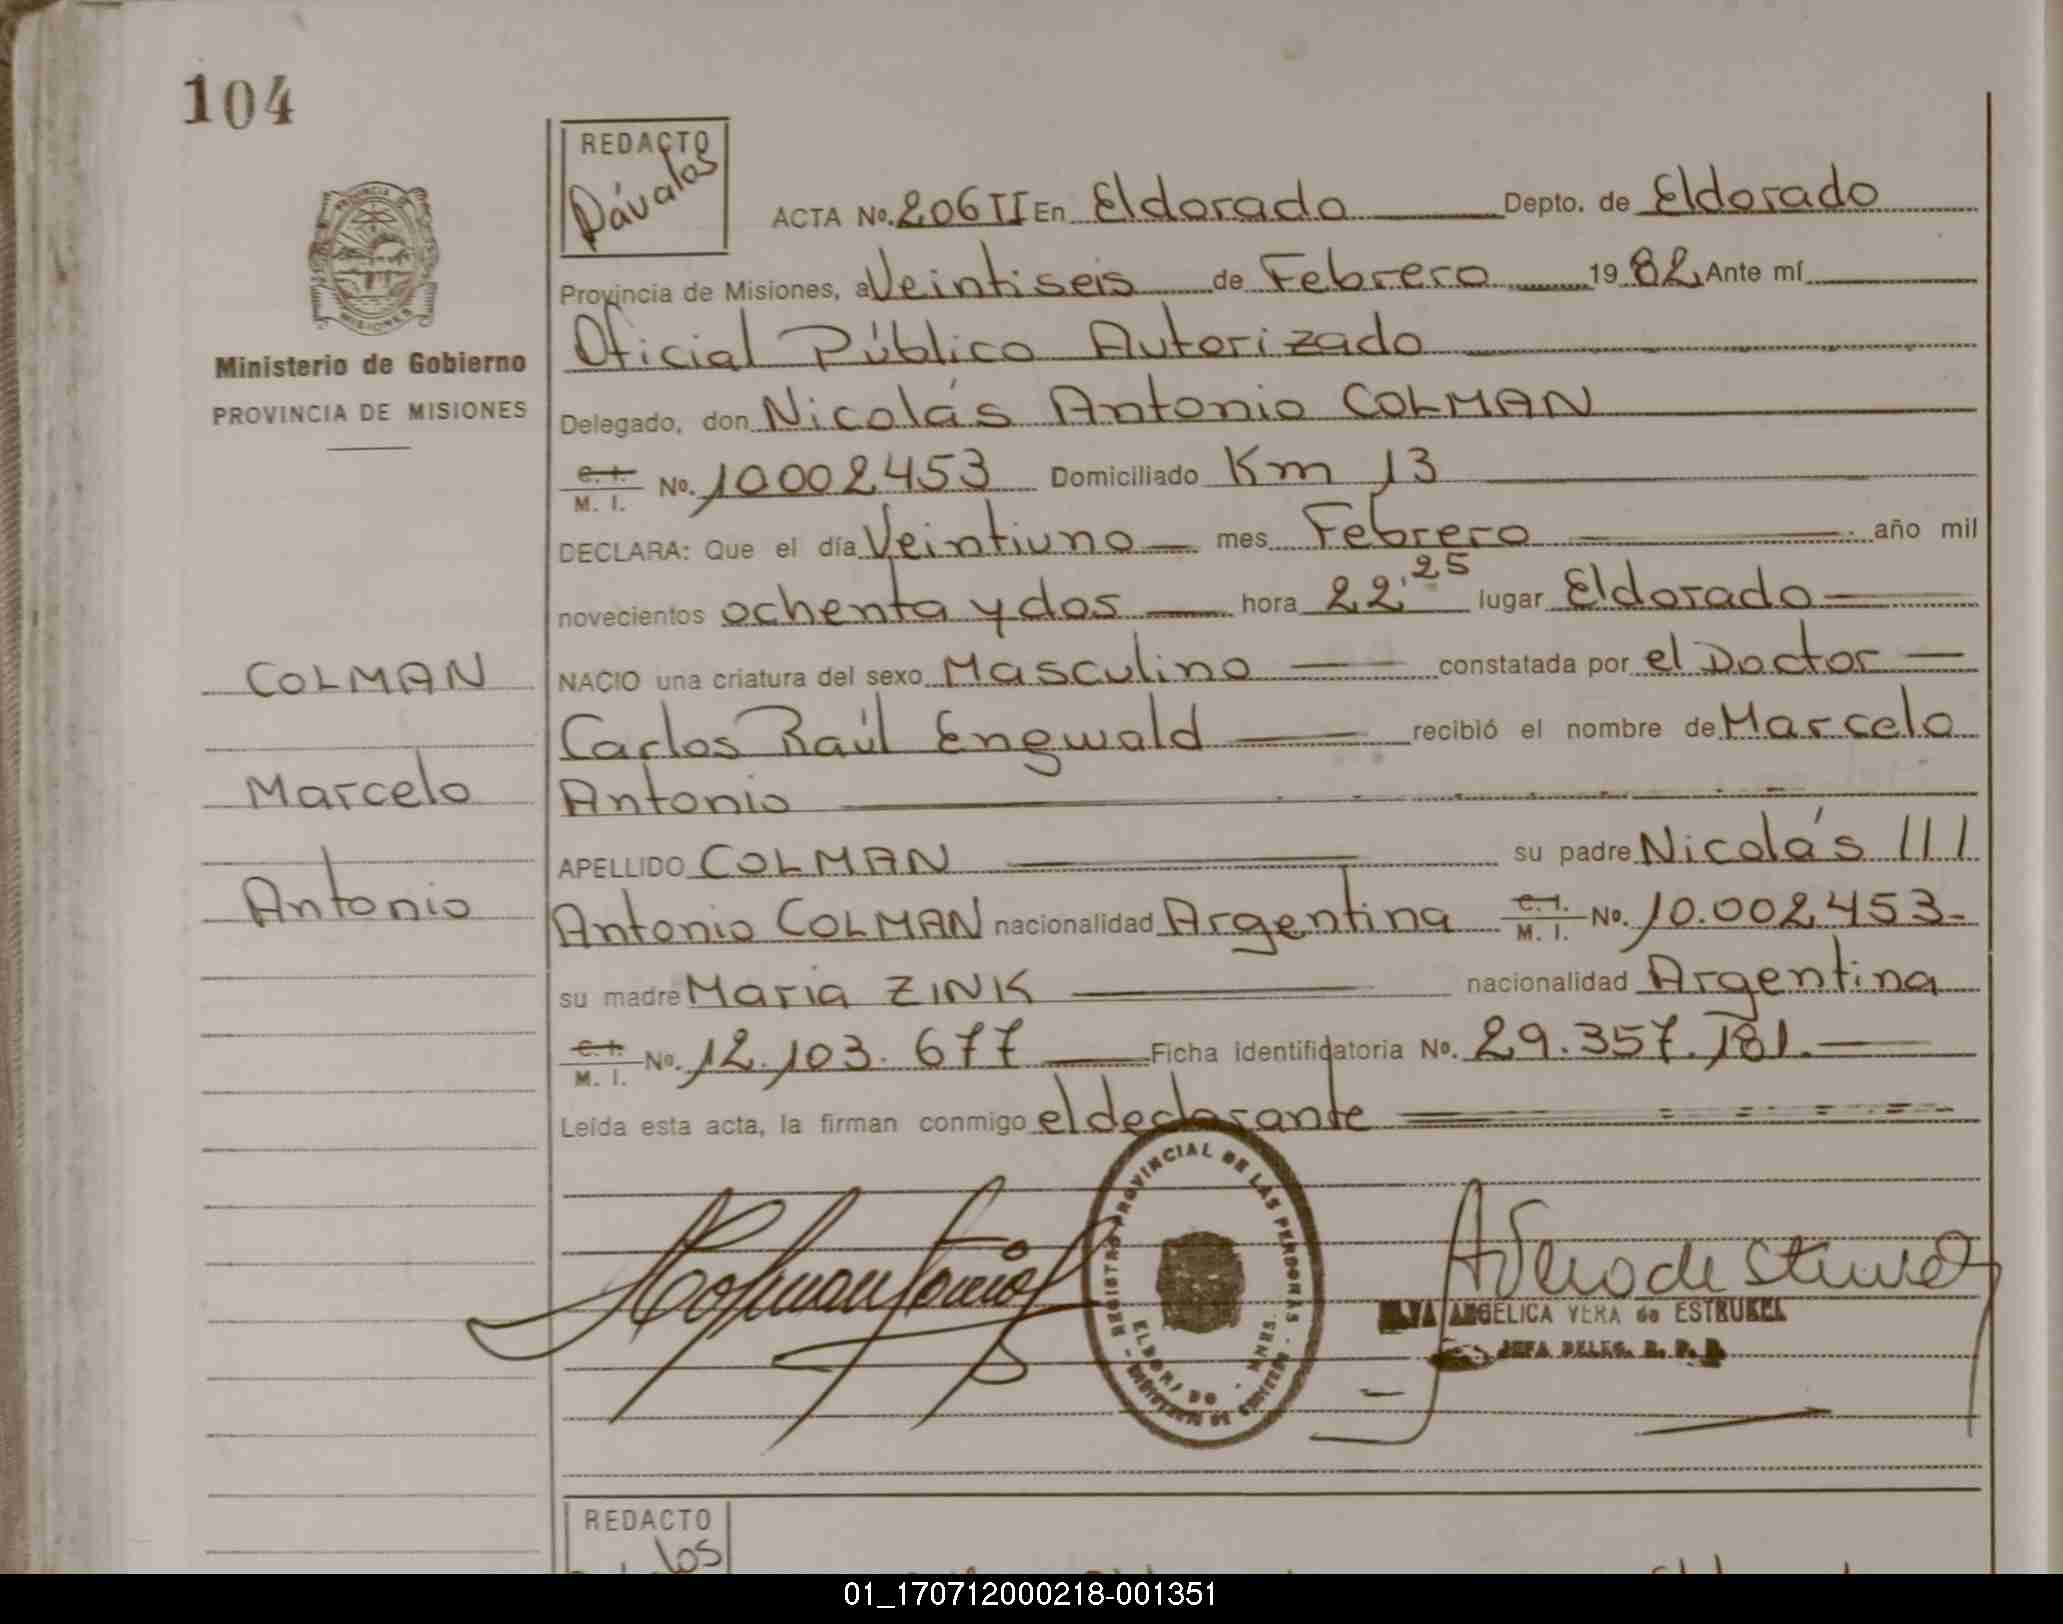 104
REDACTO
Dávalos
ACTA No. 206 II En Eldorado Depto. de Eldorado
Provincia de Misiones, a Veintiseis de Febrero 1982 Ante mí
Oficial Público Autorizado
Ministerio de Gobierno
PROVINCIA DE MISIONES
Delegado, don Nicolás Antonio COLMAN
C. I. M. I. No. 10002453 Domiciliado Km 13
DECLARA: Que el día Veintiuno mes Febrero año mil
novecientos ochenta y dos hora 22.25 lugar Eldorado
COLMAN
NACIO una criatura del sexo Masculino constatada por el Doctor
Carlos Raúl Engwald recibió el nombre de Marcelo
Marcelo
Antonio
APELLIDO COLMAN su padre Nicolás
Antonio
Antonio COLMAN nacionalidad Argentina C. I. M. I. No. 10.002453-
su madre Maria ZINK nacionalidad Argentina
C. I. M. I. No. 12.103.677 Ficha identificatoria No. 29.357.181.
Leída esta acta, la firman conmigo el declarante
REGISTRO PROVINCIAL DE LAS PERSONAS
ELDORADO - MNES.
ANGELICA VERA de ESTRUBEL
JEFA DELEG. R. P. P.
REDACTO
01_170712000218-001351